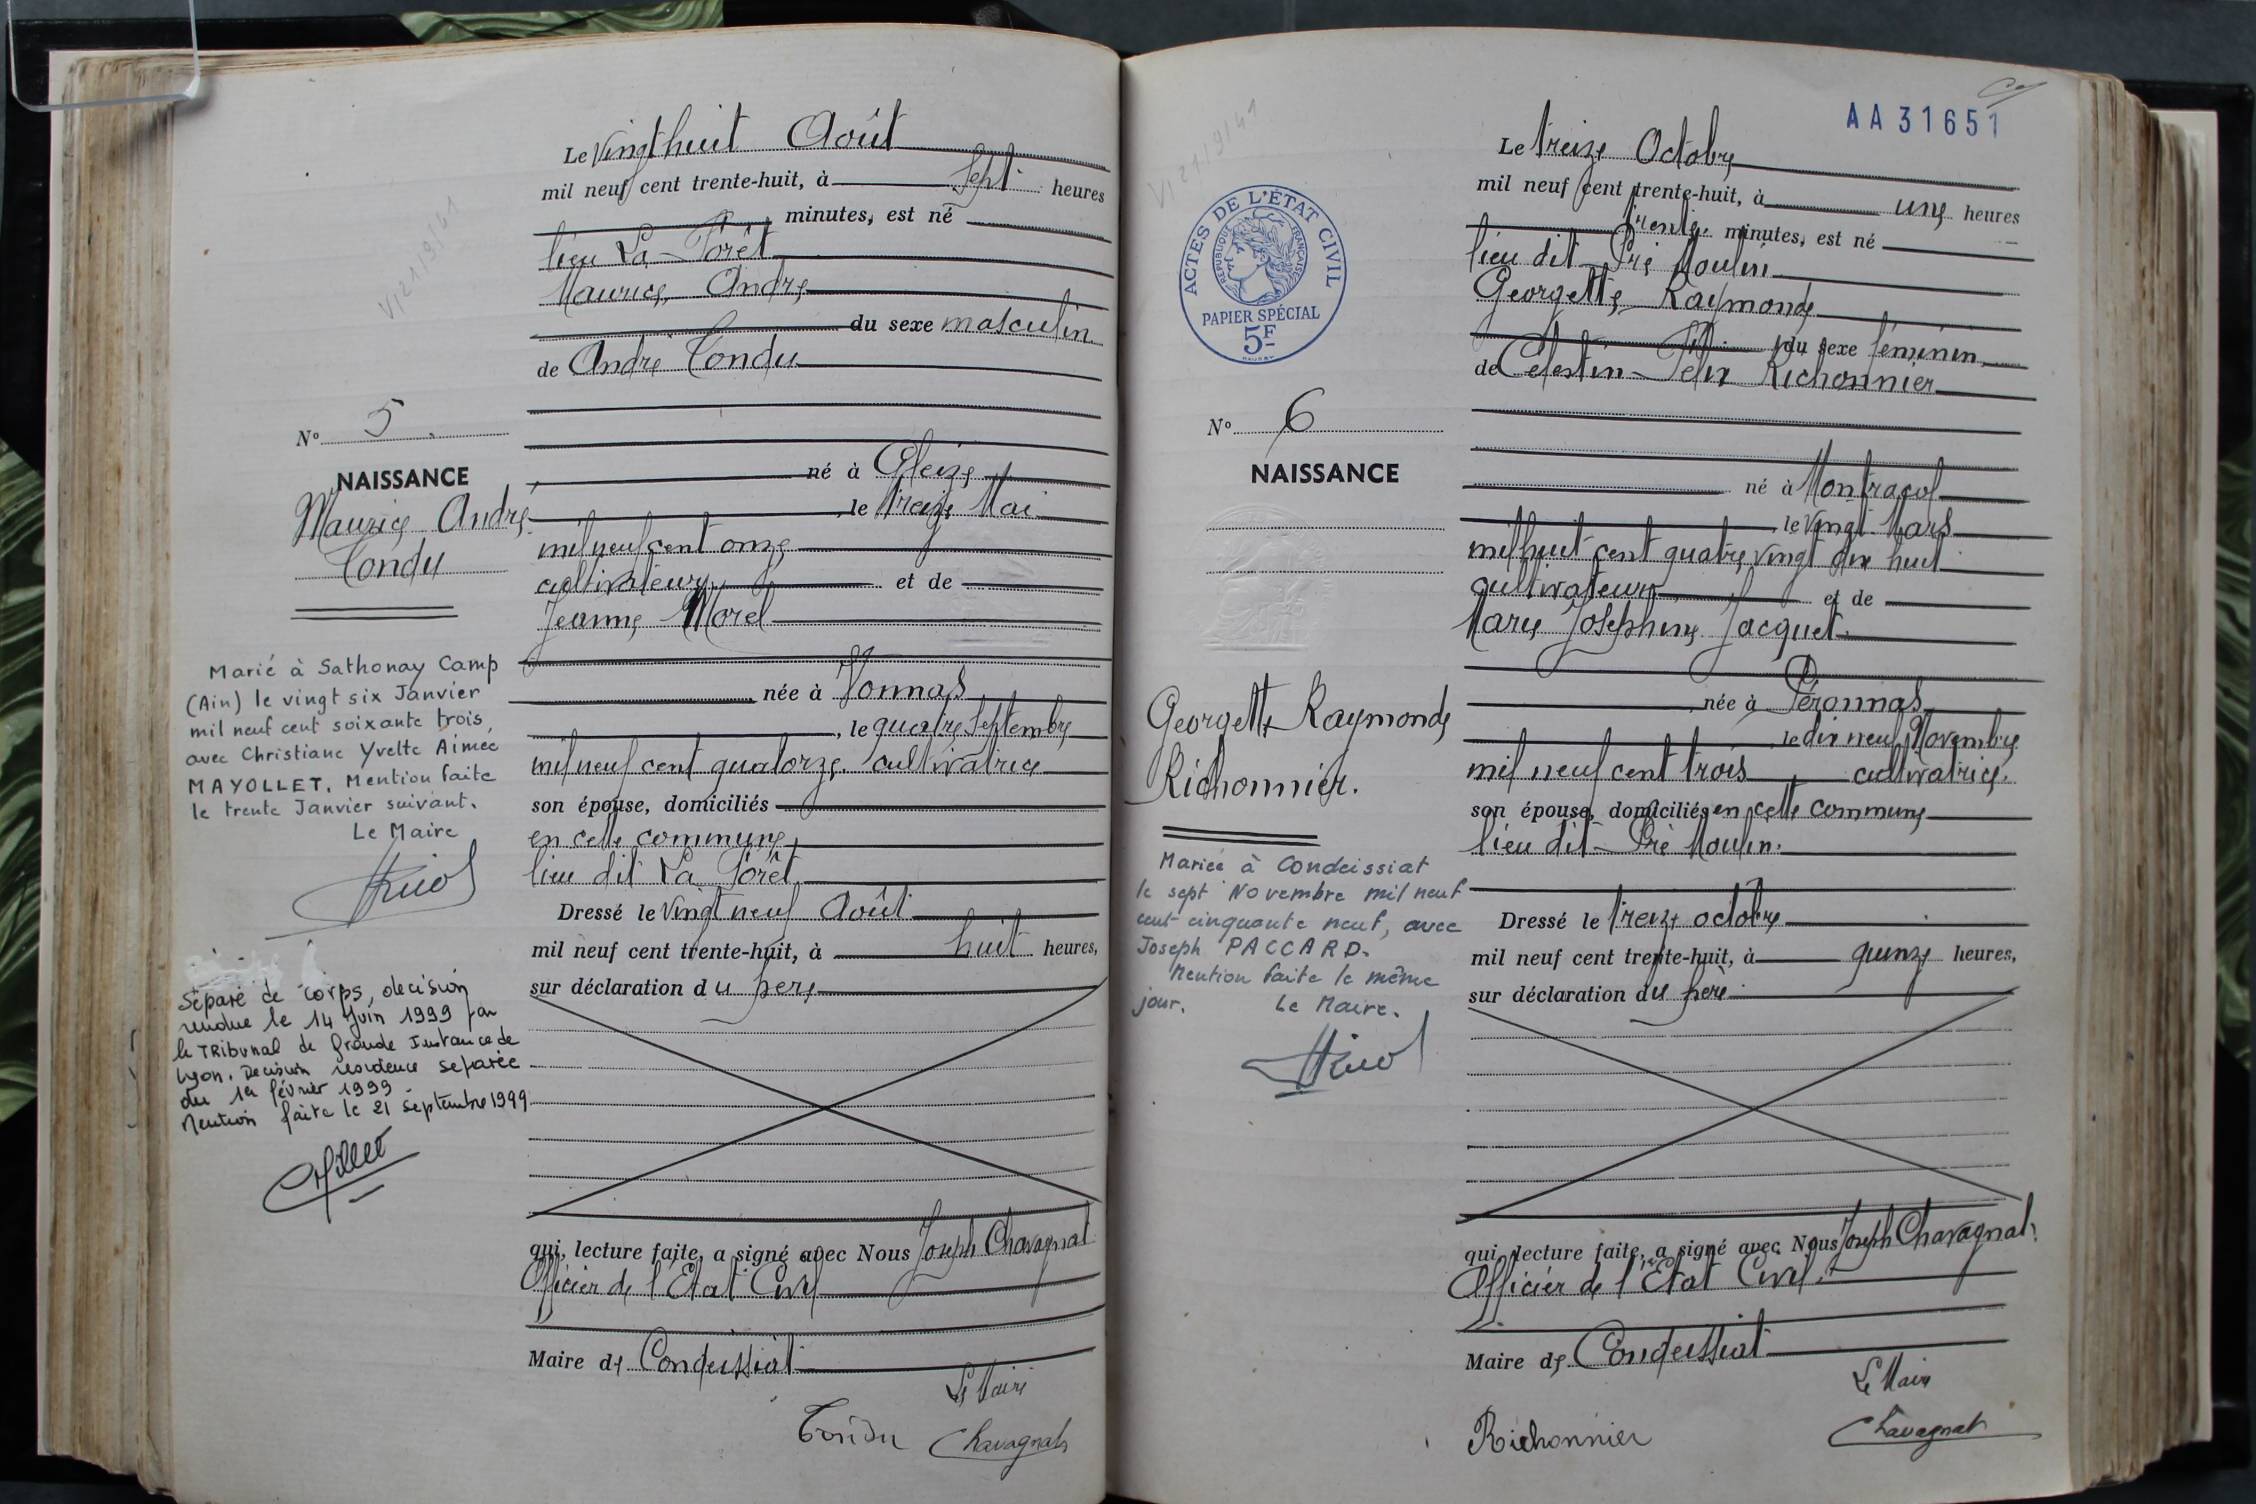 Le vingt huit Août
mil neuf cent trente-huit, à sept heures
minutes, est né
lieu La Forêt
Maurice, André
du sexe masculin
de André Tondu
N° 5
né à Gleizé
NAISSANCE
, le treize Mai
Maurice André
mil neuf cent onze
Tondu
cultivateur et de
Jeanne Morel
née à Vonnas
, le quatre Septembre
mil neuf cent quatorze, cultivatrice
son épouse, domiciliés
en cette commune,
lieu dit La Forêt
Dressé le vingt neuf Août
mil neuf cent trente-huit, à huit heures,
sur déclaration du père
qui, lecture faite, a signé avec Nous Joseph Chavagnat
Officier de l'Etat Civil
Maire de Condeissiat
Le Maire
Tondu Chavagnat
Marié à Sathonay Camp
(Ain) le vingt six Janvier
mil neuf cent soixante trois,
avec Christiane Yvette Aimée
MAYOLLET. Mention faite
le trente Janvier suivant.
Le Maire
Séparé de corps, decision
rendue le 14 Juin 1999 par
le TRIBUNAL de Grande Instance de
Lyon. Decision residence separée
du 1er février 1999.
Mention faite le 21 Septembre 1999
AA31651
Le treize Octobre
mil neuf cent trente-huit, à une heures
trente minutes, est né
lieu dit Pré Moulin
Georgette, Raymonde
du sexe féminin
de Célestin Félix Richonnier
ACTES DE L'ÉTAT CIVIL
RÉPUBLIQUE FRANÇAISE
PAPIER SPÉCIAL
5F
N° 6
NAISSANCE
né à Montracol
le vingt Mars
mil huit cent quatre vingt dix huit
cultivateur et de
Marie Joséphine Jacquet
née à Péronnas
, le dix neuf Novembre
mil neuf cent trois, cultivatrice.
son épouse, domiciliés en cette commune
lieu dit Pré Moulin.
Dressé le treize octobre
mil neuf cent trente-huit, à quinze heures,
sur déclaration du père
qui, lecture faite, a signé avec Nous Joseph Chavagnat,
Officier de l'Etat Civil.
Maire de Condeissiat
Le Maire
Richonnier Chavagnat
Georgette Raymonde
Richonnier.
Mariée à Condeissiat
le sept Novembre mil neuf
cent cinquante neuf, avec
Joseph PACCARD.
Mention faite le même
jour. Le Maire.